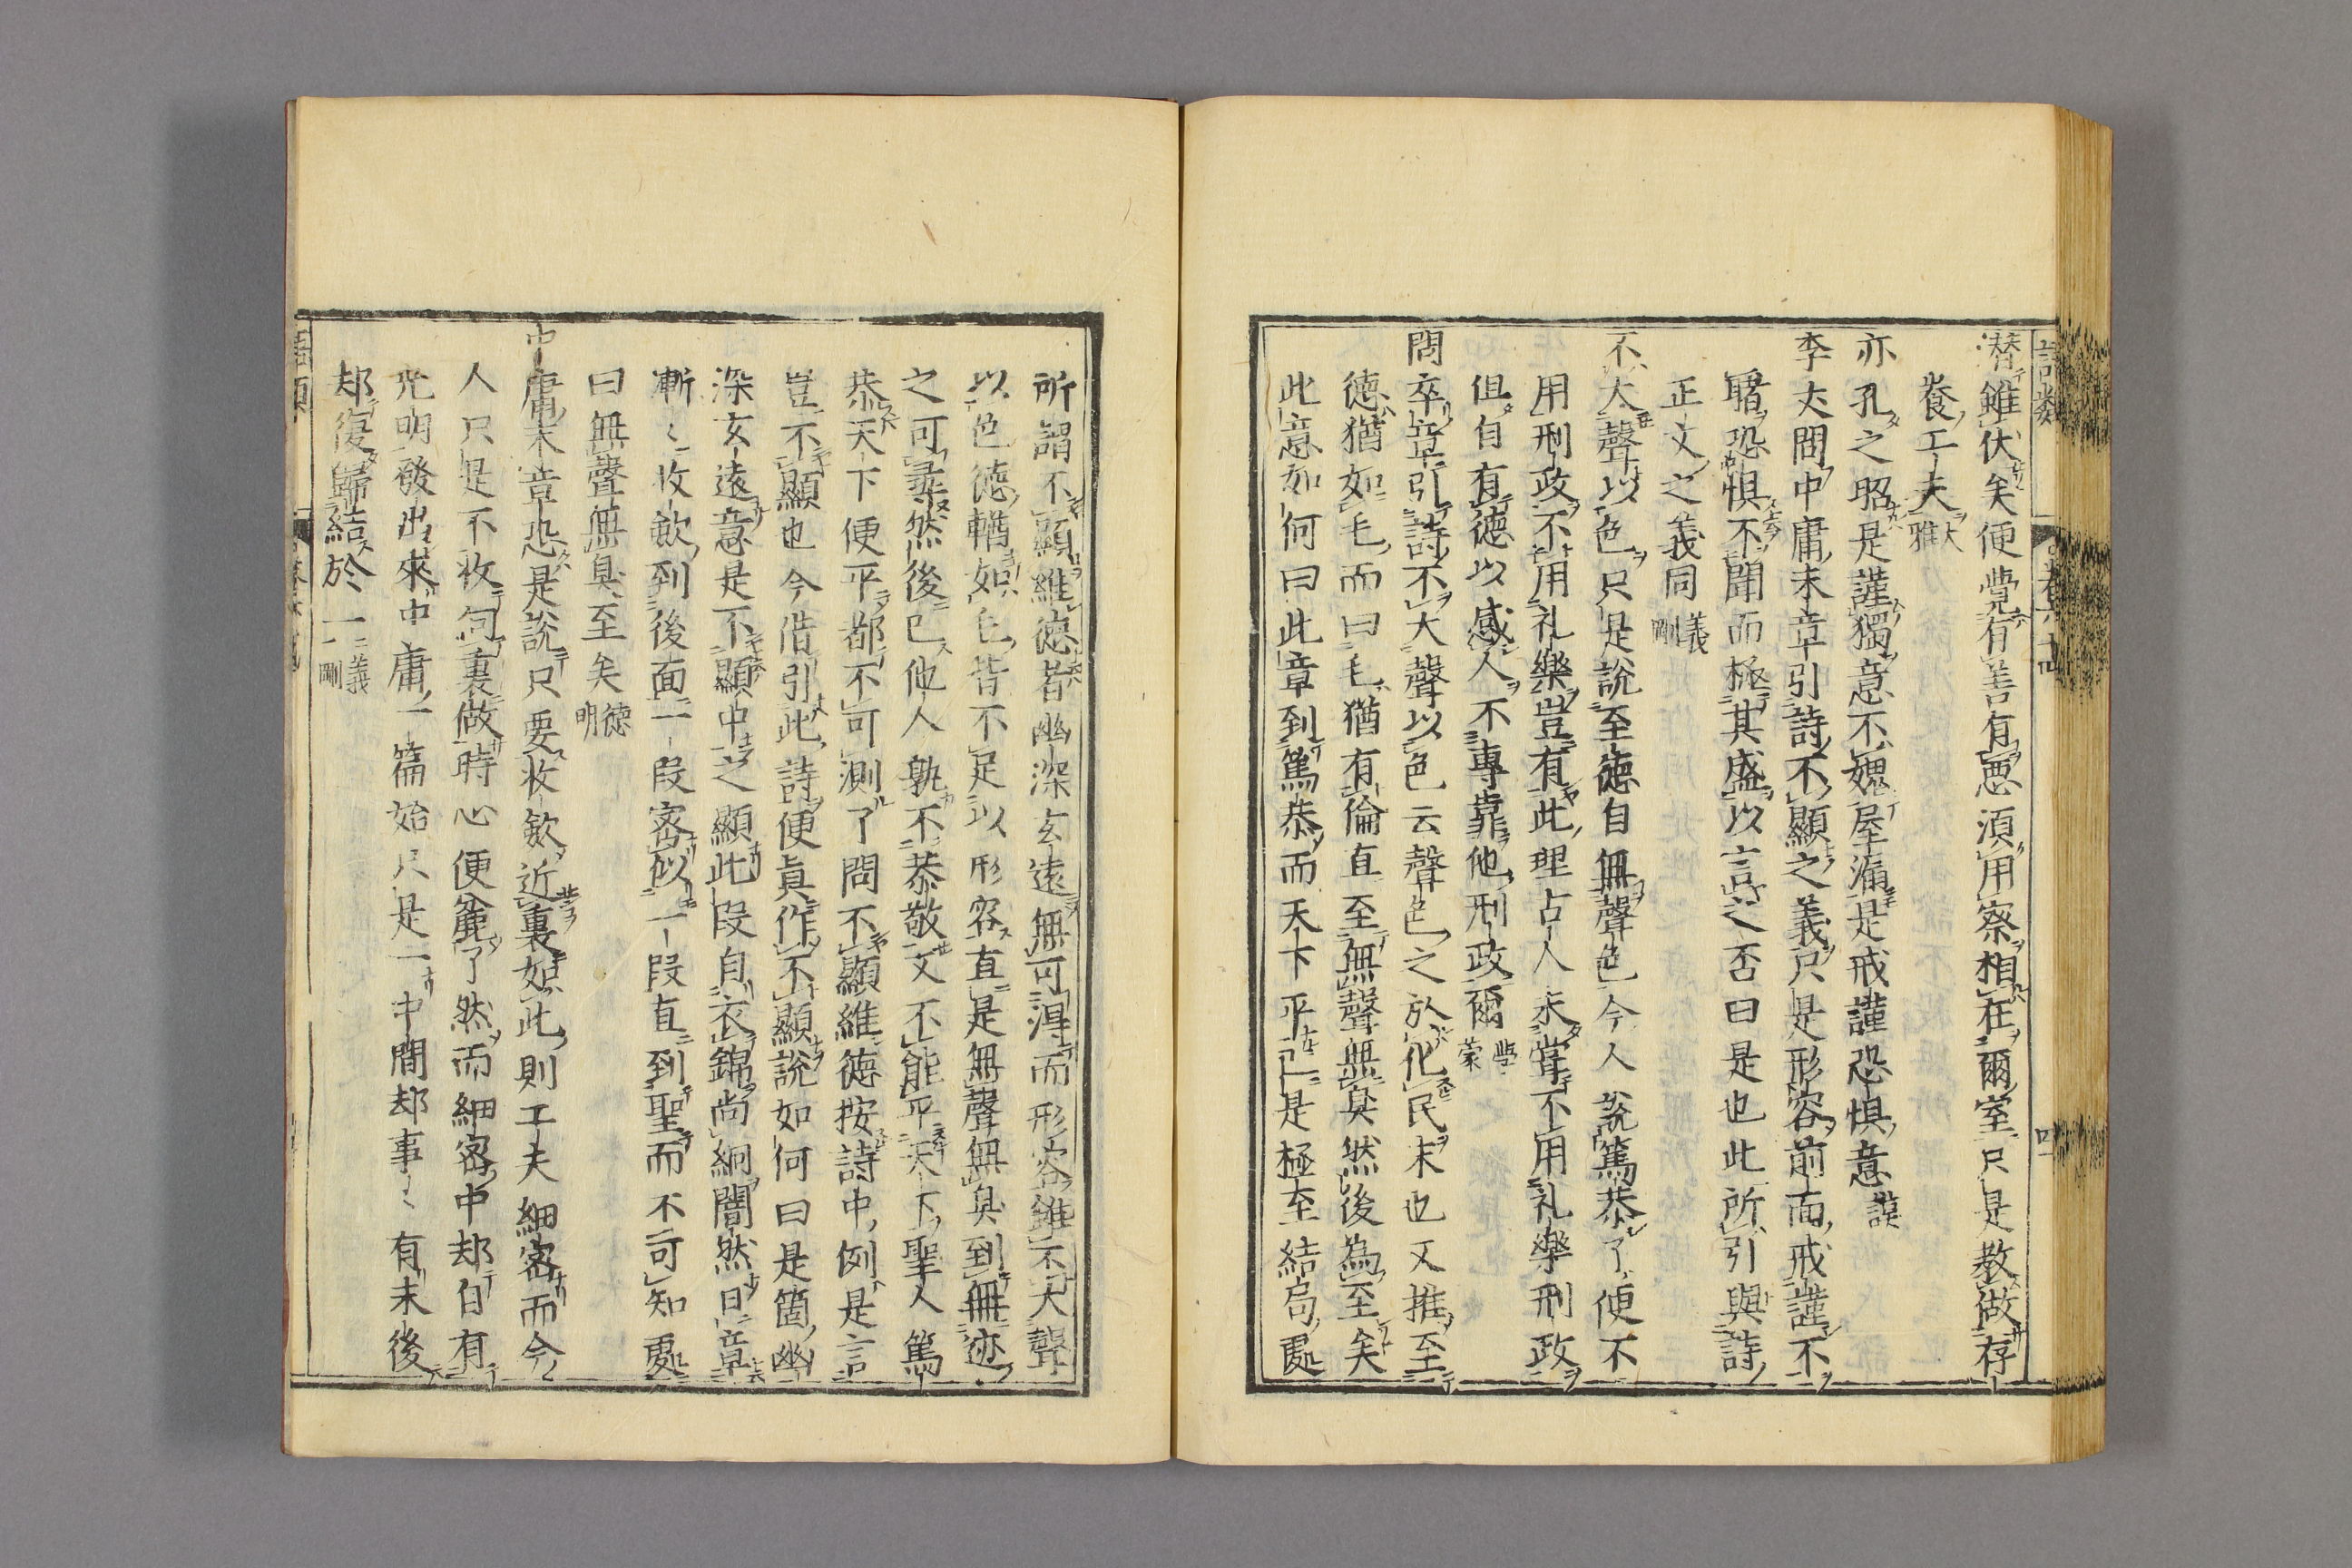 潛雖伏矣便覺有善有惡須用察相在爾室只是教做存
養工夫大雅
亦孔之昭是謹獨意不媿屋漏是戒謹恐惧意謨
李丈問中庸末章引詩不顯之義只是形容前面戒謹不
睹恐惧不聞而極其盛以言之否曰是也此所引與詩
正文之義同義剛
不大聲以色只是說至德自無聲色今人說篤恭了便不
用刑政不用礼樂豈有此理古人未嘗不用礼樂刑政
但自有德以感人不專靠他刑政爾學蒙
問卒章引詩不大聲以色云聲色之於化民末也又推至
德猶如毛而曰毛猶有倫直至無聲無臭然後為至矣
此意如何曰此章到篤恭而天下平已是極至結局處
所謂不顯維德者幽深玄遠無可淂而形容雖不大聲
以色德輶如毛皆不足以形容直是無聲無臭到無迹
之可尋然後已他人孰不恭敬又不能平天下聖人篤
恭天下便平都不可測了問不顯維德按詩中例是言
豈不顯也今借引此詩便真作不顯說如何曰是箇幽
深玄遠意是不顯中之顯此段自衣錦尚絅闇然日章
漸〻收歛到後面一段密似一段直到聖而不可知處
曰無聲無臭至矣德明
中庸末章恐是說只要收歛近裏如此則工夫細密而今
人只是不收向裏做時心便麄了然而細密中却自有
光明發出來中庸一篇始只是一中間却事〻有末後
却復歸結於一義剛